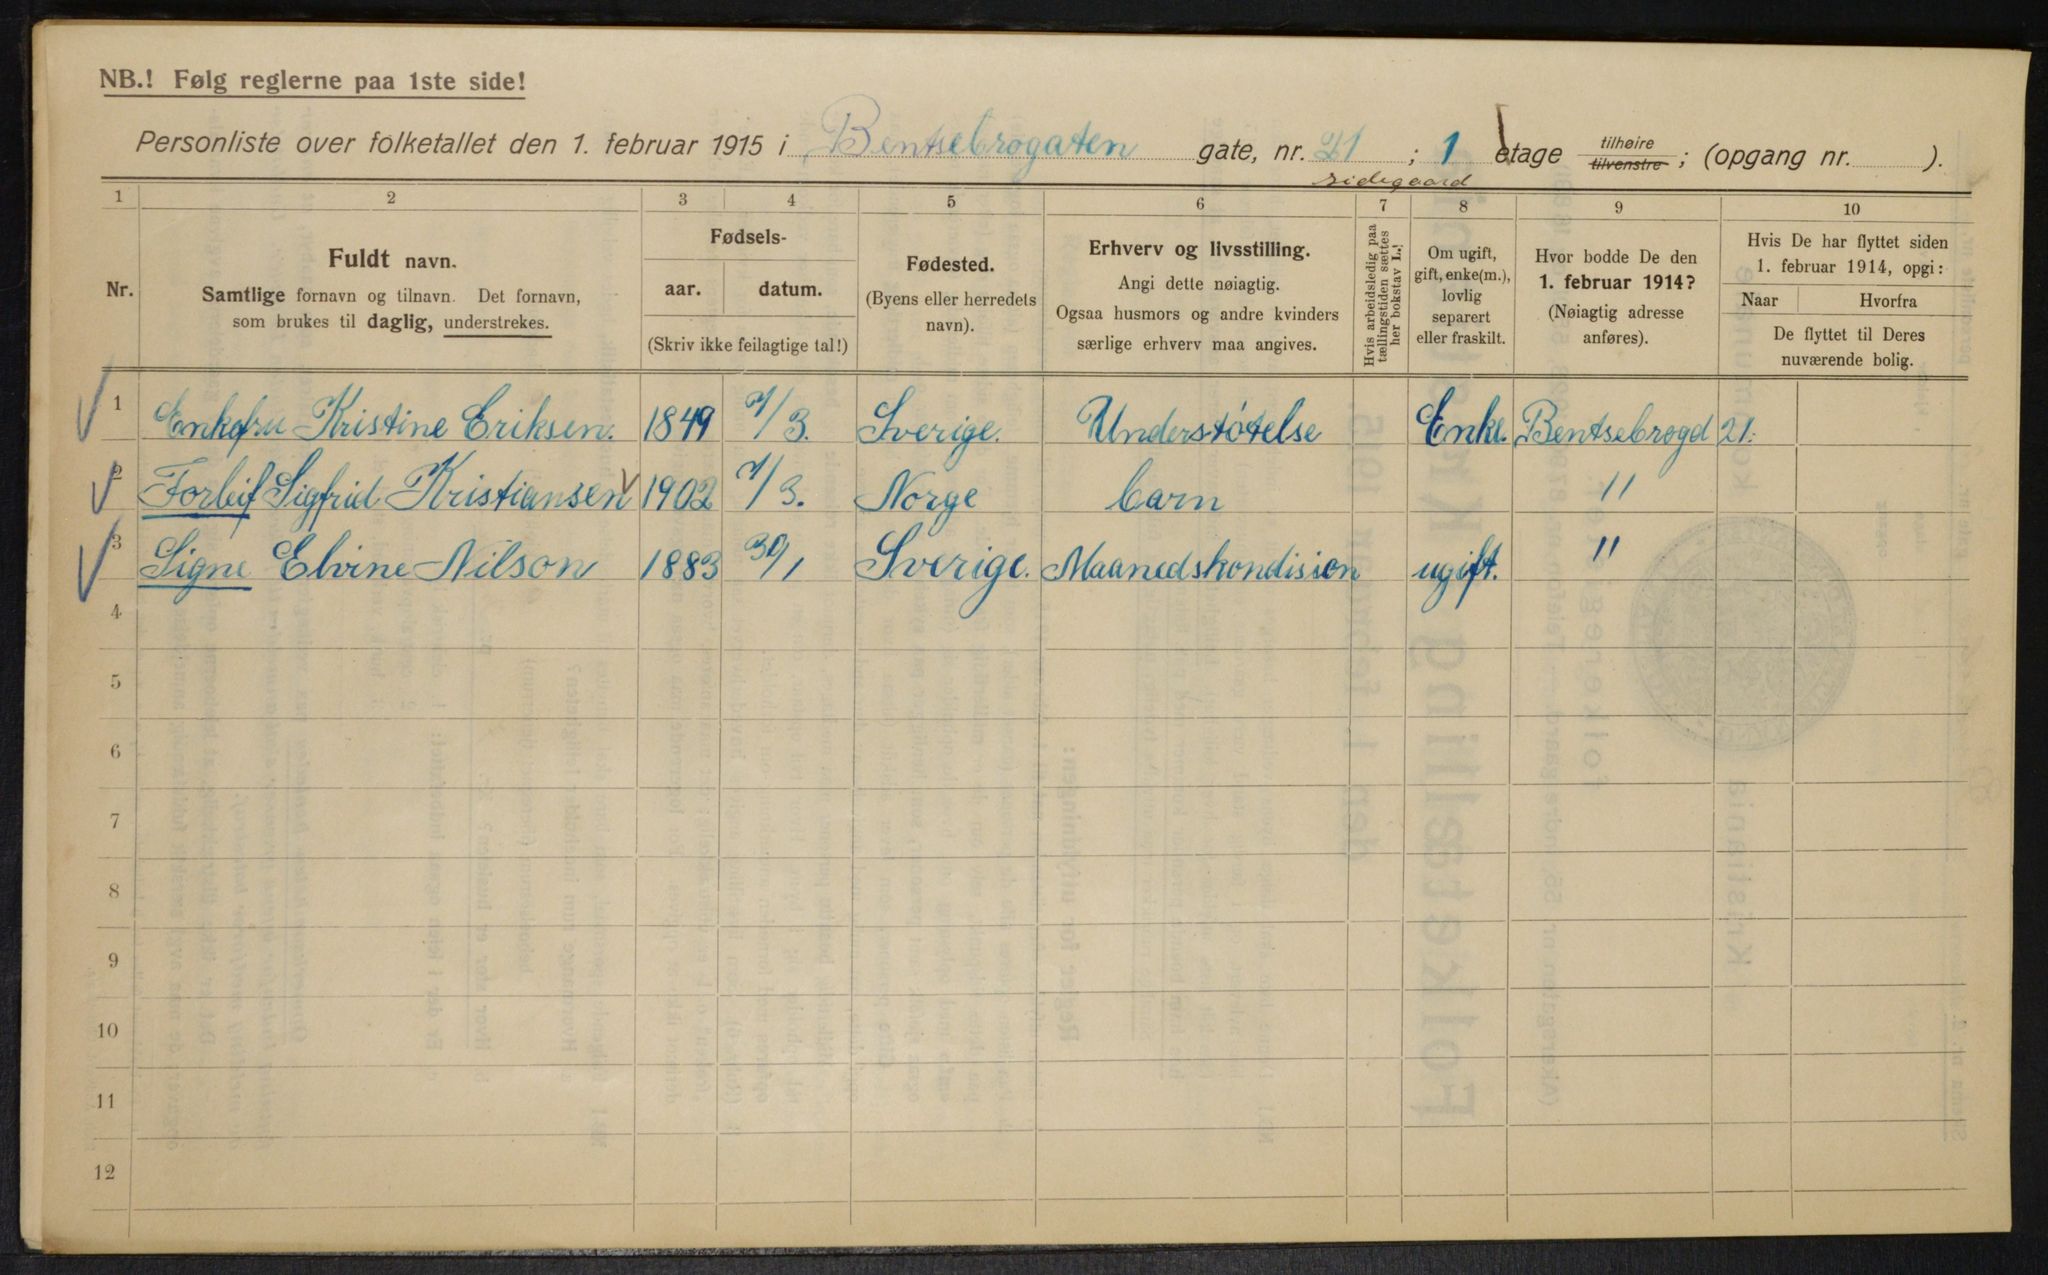 NB.! Følg reglerne paa 1ste side!
Personliste over folketallet den 1. februar 1915 i Bentsebrogaten gate, nr. 21 ; 1 etage tilhøire tilvenstre ; (opgang nr. ).
sidegaard
1 2 3 4 5 6 7 8 9 10
Nr.
Fuldt navn.
Samtlige fornavn og tilnavn. Det fornavn,
som brukes til daglig, understrekes.
Fødsels-
aar. datum.
(Skriv ikke feilagtige tal!)
Fødested.
(Byens eller herredets
navn).
Erhverv og livsstilling.
Angi dette nøiagtig.
Ogsaa husmors og andre kvinders
særlige erhverv maa angives.
Hvis arbeidsledig paa
tællingstiden sættes
her bokstav L.!
Om ugift,
gift, enke(m.),
lovlig
separert
eller fraskilt.
Hvor bodde De den
1. februar 1914?
(Nøiagtig adresse
anføres).
Hvis De har flyttet siden
1. februar 1914, opgi:
Naar Hvorfra
De flyttet til Deres
nuværende bolig.
1 Enkefru Kristine Eriksen. 1849 7/3. Sverige. Understøtelse Enke. Bentsebrogd 21.
2 Torleif Sigfrid Kristiansen 1902 7/3. Norge barn "
3 Signe Elvine Nilson 1883 30/1 Sverige. Maanedskondision ugift. "
4
5
6
7
8
9
10
11
12